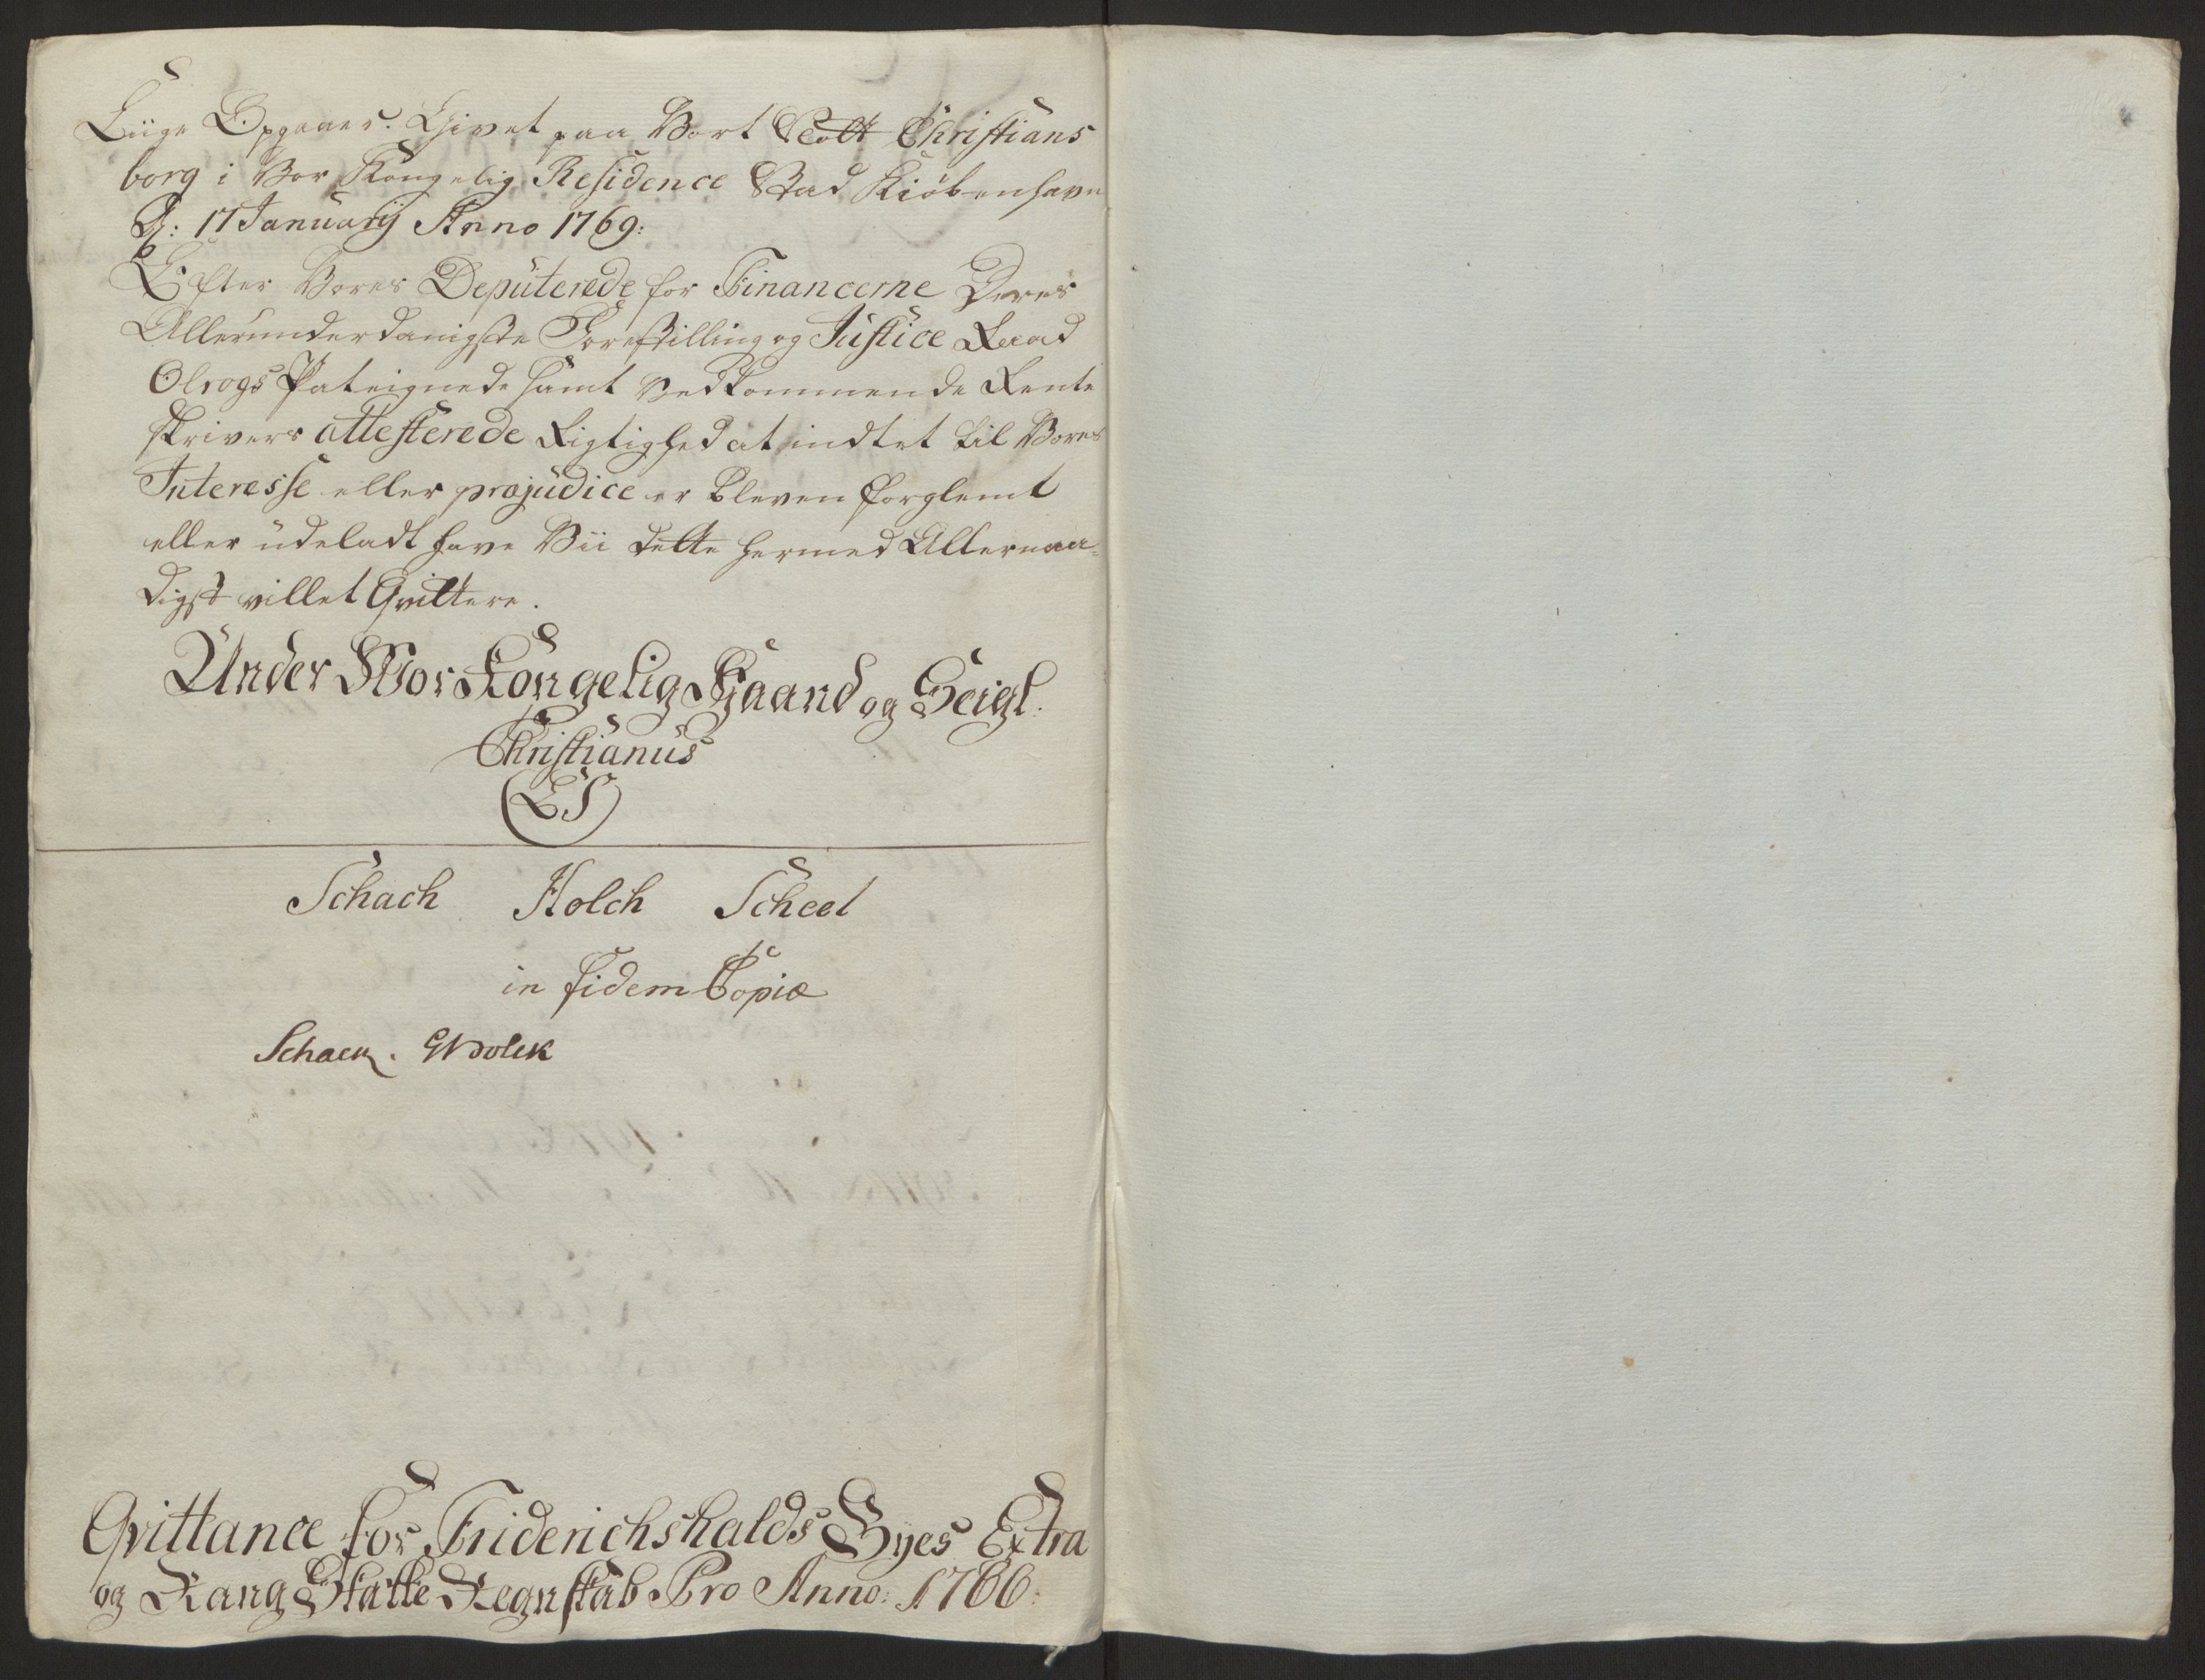 Liige Opgaaes. Givet paa Vort Slott Christians
borg i Vor Kongelig Residence Stad Kiøbenhavn
D: 17 Januarij Anno 1769:
Efter Vores Deputerede for Financerne Deres
Allerunderdanigste Forestilling og Justice Raad
Olrogs Pateignede samt Vedkommende Rente
skrivers attesterede Rigtighed at indtet til Vores
Interesse eller præjudice er bleven forglemt
eller udeladt have Vii dette hermed Allernaa-
digst villet Qvittere.
Under Vor Kongelig Haand og Seigl.
Christianus
(LS)
Schach Holch Scheel
in fidem Copiæ
Schack.
Qvittance for Friderichshalds Byes Extra
og Rang Skatte Regnskab Pro Anno: 1766: